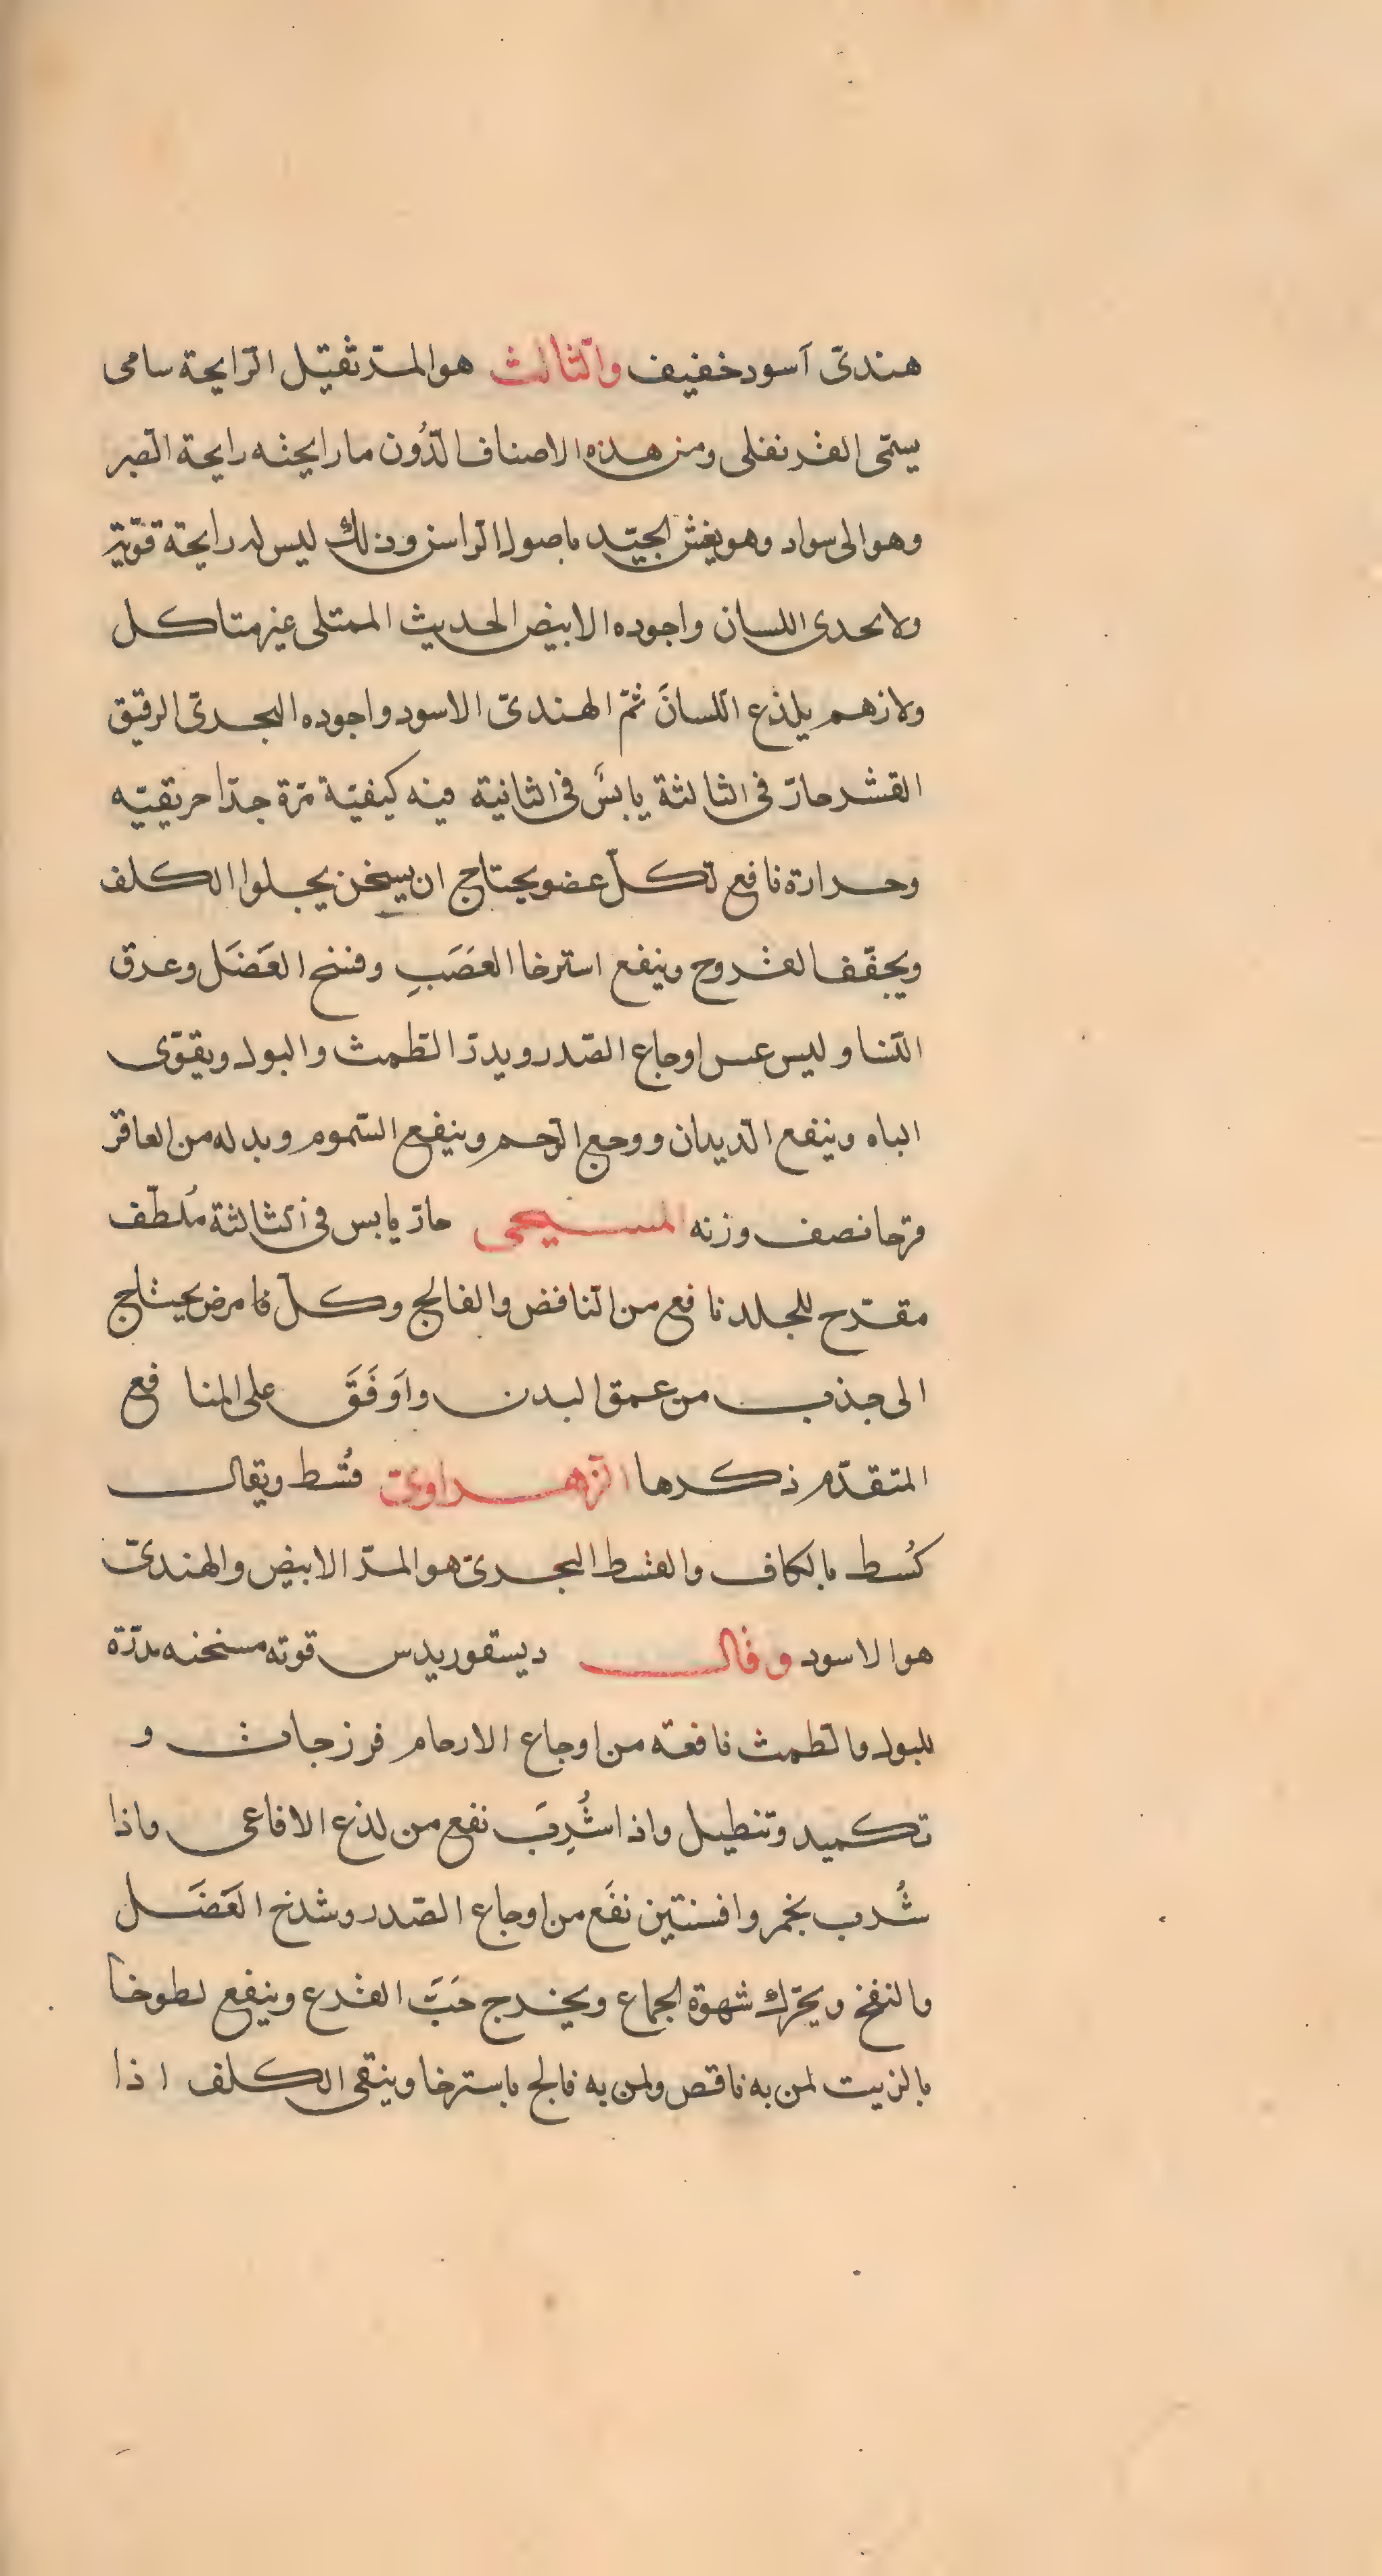 هندىّ آسود خفيف والثالث هو المرّ ثقيل الرّايحة سامى
يسمّى القرنفلى ومن هذه الاصناف الدُّون ما رايحته رايحة الصّبر
وهو الى سواد وهو يغش الجيّد باصول الرّاسن وذلك ليس له رايحة قويّة
ولا يحدى اللسان واجوده الابيض الحديث الممتلى غير متاكل
ولا زهم يلذع اللّسانَ ثمّ الهندىّ الاسود واجوده البحرىّ الرقيق
القشر حارّ فى الثالثة يابسٌ فى الثانية فيه كيفيّة مرّة جدّا حريقيّه
وحرارة نافع لكلّ عضو يحتاج ان يسخن يجلوا الكلف
ويجفّف القروح وينفع استرخا العصَبِ وفسخ العَضَل وعرق
النّسا وليس عسر اوجاع الصّدر ويدرّ الطّمث والبول ويقوّى
الباه وينفع الدّيدان ووجع الرّحم وينفع السّموم وبدله من العاقر
قرحا نصف وزنه المسيحى حارّ يابس فى الثالثة مُلطّف
مقرّح للجلد نافع من النّافض والفالج وكلّ ما مرض يحتاج
الى جذب من عمق البدن واَوفَقَ على المنافع
المتقدّم ذكرها الزّهراوىّ قُسط ويقال
كُسط بالكاف والقسط البحرىّ هو المرّ الابيض والهندىّ
هو الاسود وقال ديسقوريدس قوته مسخنه مدرّة
للبول والطمث نافعة من اوجاع الارحام فرزجات و
تكميد وتنطيل واذا شُرِبَ نفع من لذع الافاعى واذا
شُرب بخمر وافسنتين نفَع من اوجاع الصّدر وشدخ العَضَل
والنفخ ويحرّك شهوة الجماع ويخرج حَبَّ القرع وينفع لطوخاً
بالزيت لمن به ناقص ولمن به فالج باسترخا وينقى الكلف اذا